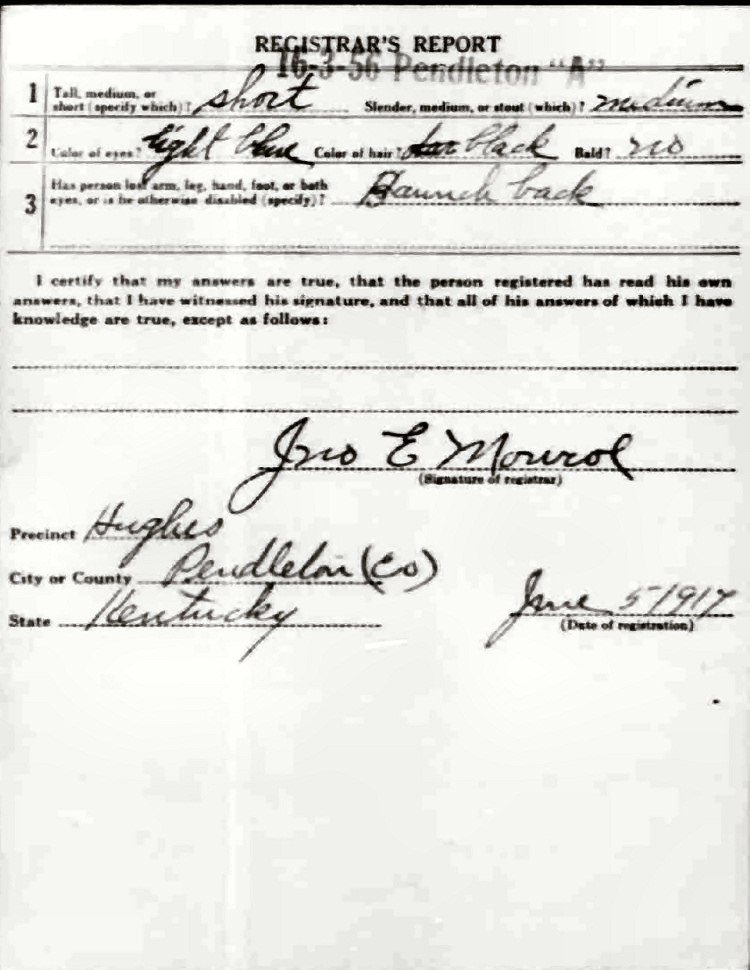 REGISTRAR'S REPORT
16-3-56 Pendleton "A"
1 Tall, medium, or short (specify which)? short Slender, medium, or stout (which)? medium
2 Color of eyes? light blue Color of hair? black Bald? no
3 Has person lost arm, leg, hand, foot, or both
eyes, or is he otherwise disabled (specify)? Haunch back
I certify that my answers are true, that the person registered has read his own
answers, that I have witnessed his signature, and that all of his answers of which I have
knowledge are true, except as follows:
Jno E Monroe
(Signature of registrar)
Precinct Hughes
City or County Pendleton (Co)
State Kentucky
June 5 1917
(Date of registration)